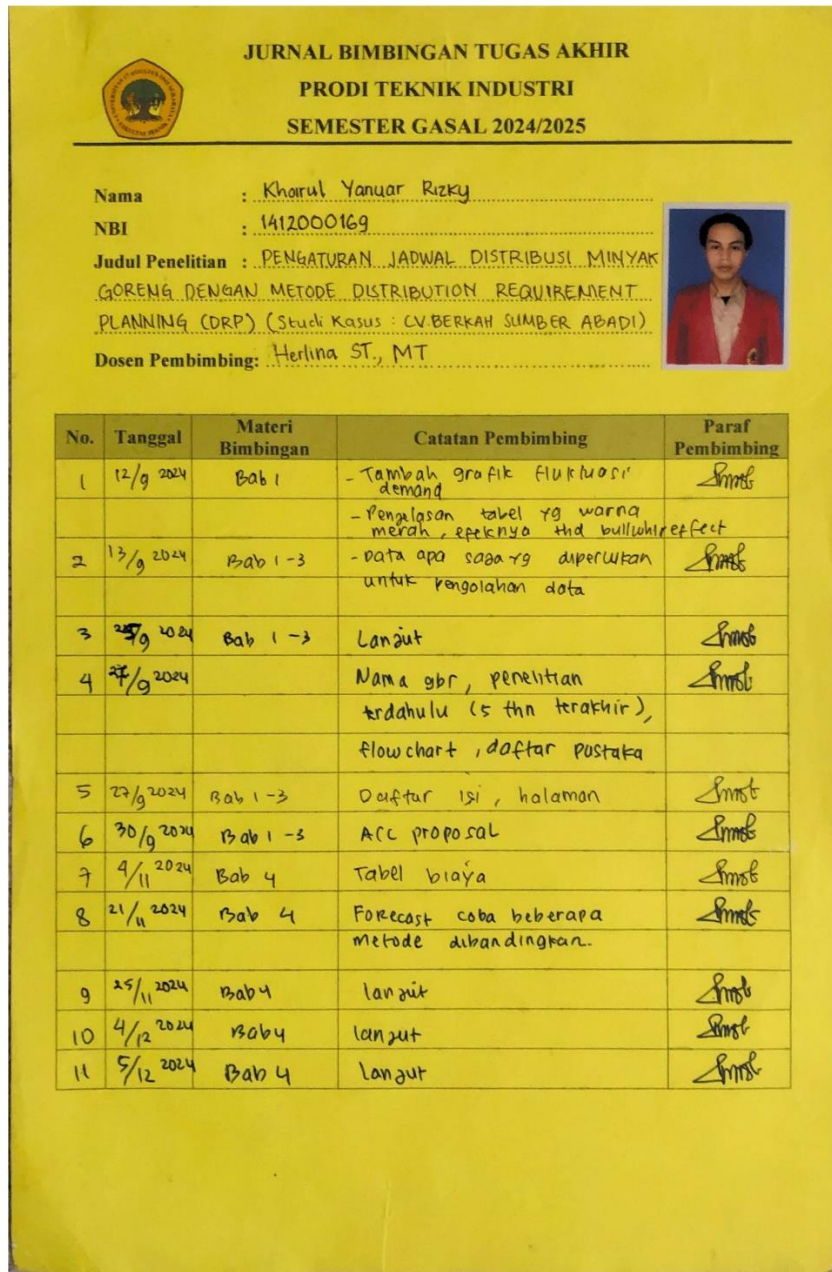 JURNAL BIMBINGAN TUGAS AKHIR
PRODI TEKNIK INDUSTRI
SEMESTER GASAL 2024/2025
Nama : Khoirul Yanuar Rizky
NBI : 1412000169
Judul Penelitian : PENGATURAN JADWAL DISTRIBUSI MINYAK
GORENG DENGAN METODE DISTRIBUTION REQUIREMENT
PLANNING (DRP) (Studi Kasus : CV.BERKAH SUMBER ABADI)
Dosen Pembimbing: Herlina ST., MT
No. Tanggal Materi Bimbingan Catatan Pembimbing Paraf Pembimbing
1 12/9 2024 Bab 1 - Tambah grafik fluktuasi
demand
- Penjelasan tabel yg warna
merah, efeknya thd bullwhip effect
2 13/9 2024 Bab 1-3 - Data apa saja yg diperlukan
untuk pengolahan data
3 /9 2024 Bab 1-3 Lanjut
4 27/9 2024 Nama gbr, penelitian
terdahulu (5 thn terakhir),
flowchart, daftar pustaka
5 27/9 2024 Bab 1-3 Daftar isi, halaman
6 30/9 2024 Bab 1-3 ACC proposal
7 4/11 2024 Bab 4 Tabel biaya
8 21/11 2024 Bab 4 Forecast coba beberapa
metode dibandingkan.
9 25/11 2024 Bab 4 lanjut
10 4/12 2024 Bab 4 lanjut
11 5/12 2024 Bab 4 Lanjut